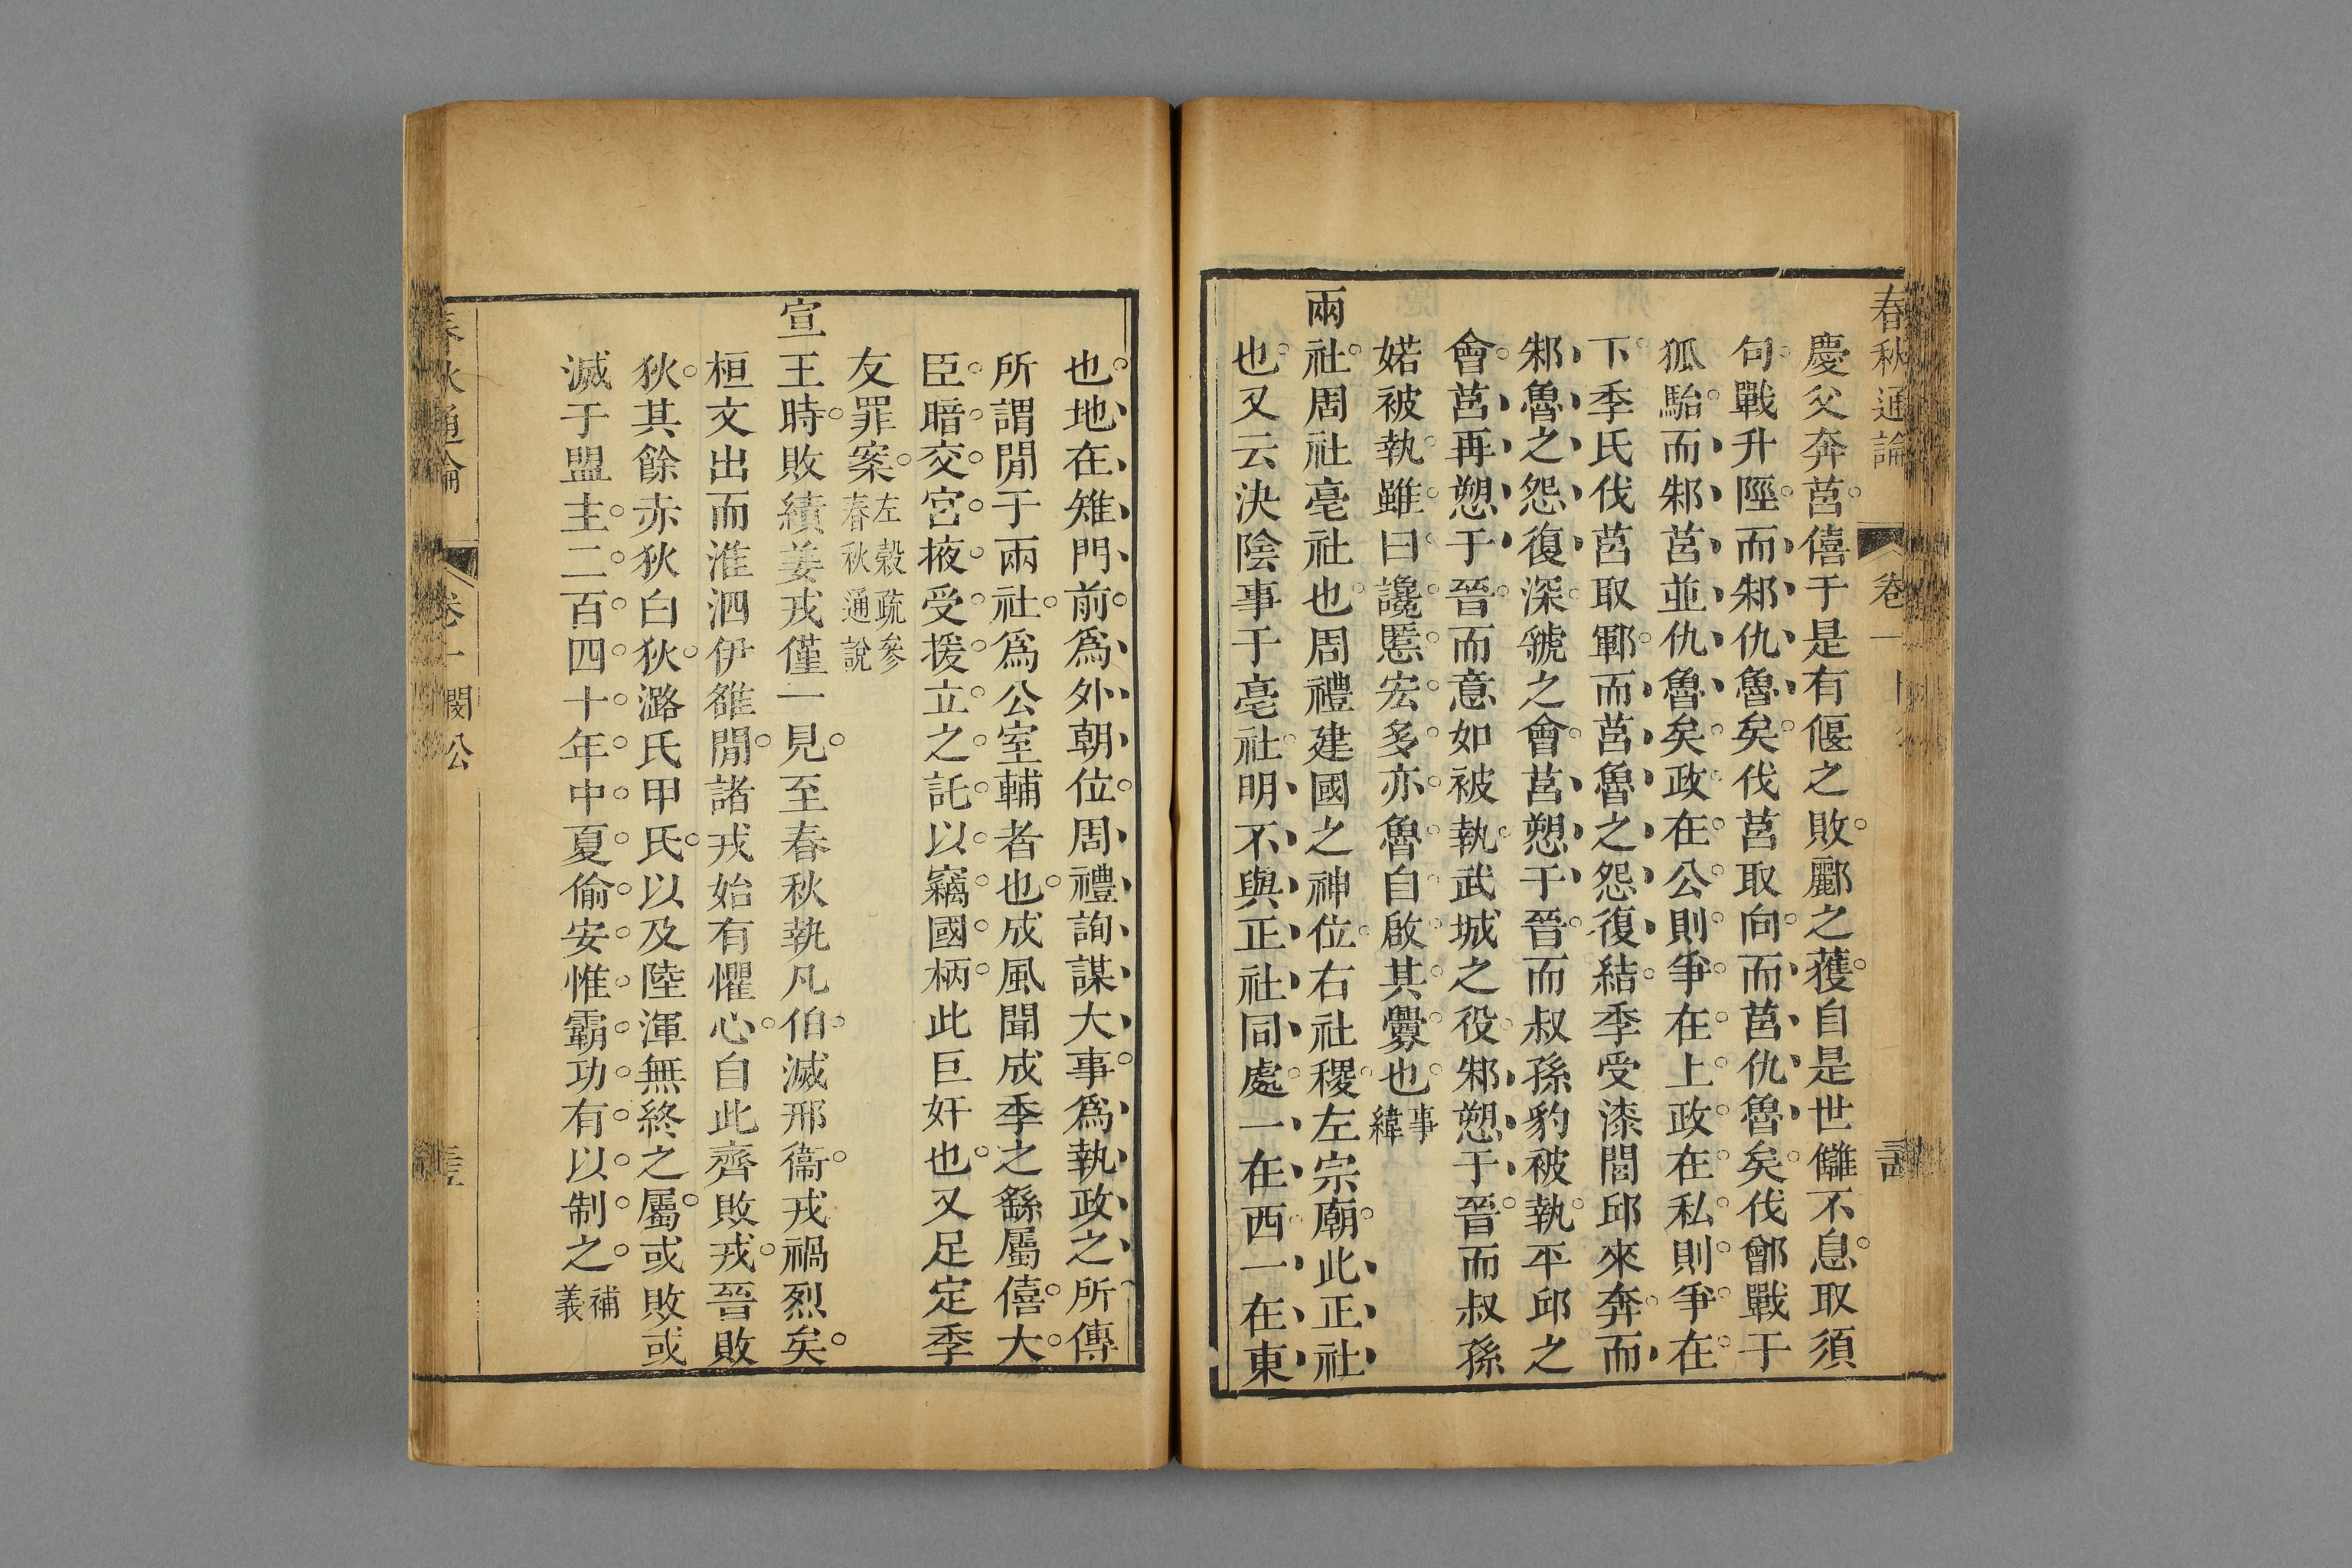 春秋通論
卷一
慶父奔莒僖于是有偃之敗酈之獲自是世讎不息取須
句戰升陘而邾仇魯矣伐莒取向而莒仇魯矣伐鄫戰于
狐駘而邾莒並仇魯矣政在公則爭在上政在私則爭在
下季氏伐莒取鄆而莒魯之怨復結季受漆閭邱來奔而
邾魯之怨復深虢之會莒愬于晉而叔孫豹被執平邱之
會莒再愬于晉而意如被執武城之役邾愬于晉而叔孫
婼被執雖曰讒慝宏多亦魯自啟其釁也事緯
兩社周社亳社也周禮建國之神位右社稷左宗廟此正社
也又云決陰事于亳社明不與正社同處一在西一在東
也地在雉門前為外朝位周禮詢謀大事為執政之所傳
所謂閒于兩社為公室輔者也成風聞成季之繇屬僖大
臣暗交宮掖受援立之託以竊國柄此巨奸也又足定季
友罪案左穀疏參春秋通說
宣王時敗績姜戎僅一見至春秋執凡伯滅邢衞戎禍烈矣
桓文出而淮泗伊雒閒諸戎始有懼心自此齊敗戎晉敗
狄其餘赤狄白狄潞氏甲氏以及陸渾無終之屬或敗或
滅于盟主二百四十年中夏偷安惟霸功有以制之補義
春秋通論
卷一 閔公